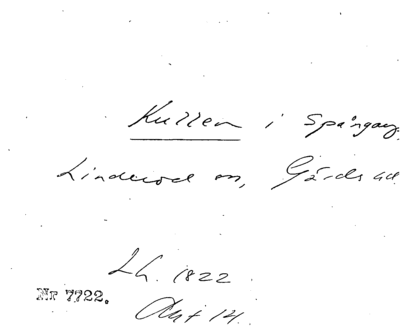 Kullen i Spångag
Linderod sn, Gärds hd
Lh. 1822
Nr 7722.
Akt 14.